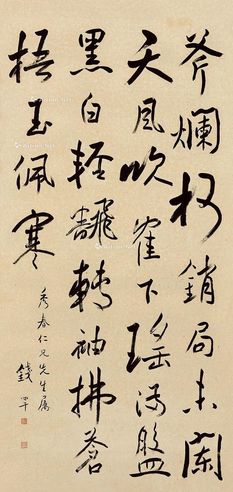 斧爛柯銷局未闌
天風吹隺下瑤盤
黑白輕飜轉袖拂蒼
梧玉佩寒
秀春仁兄先生屬
錢罕